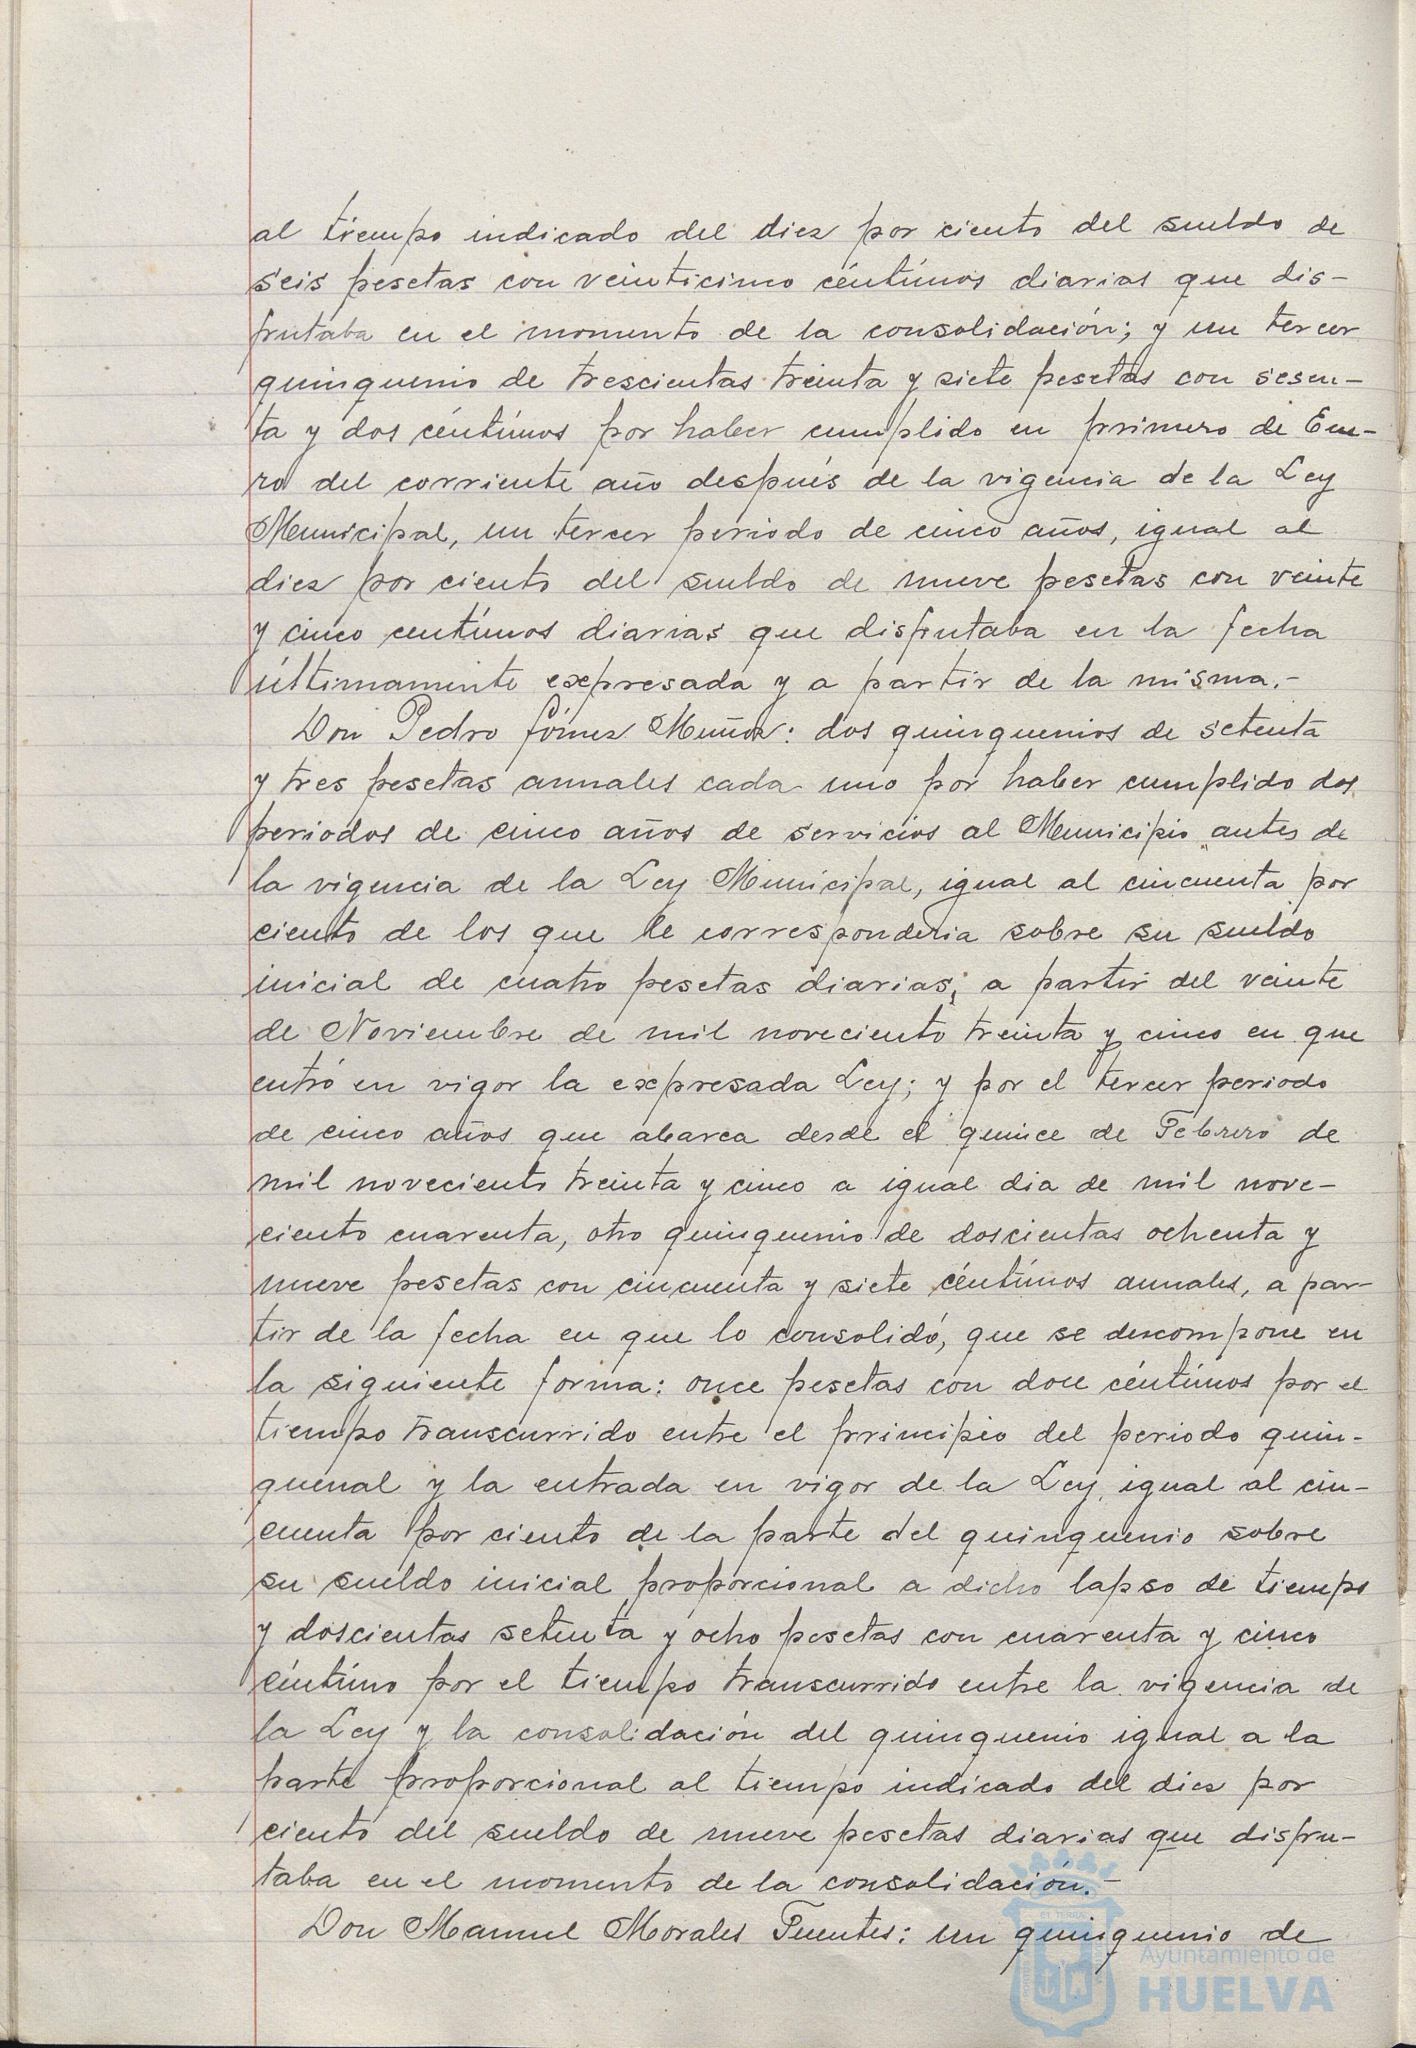 al tiempo indicado del diez por ciento del sueldo de
seis pesetas con veinticinco céntimos diarias que dis-
frutaba en el momento de la consolidación; y un tercer
quinquenio de trescientas treinta y siete pesetas con sesen-
ta y dos céntimos por haber cumplido en primero de Ene-
ro del corriente año después de la vigencia de la Ley
Municipal, un tercer periodo de cinco años, igual al
diez por ciento del sueldo de nueve pesetas con veinte
y cinco centímos diarias que disfrutaba en la fecha
últimamente expresada y a partir de la misma.-
Don Pedro Gómez Muñoz: dos quinquenios de setenta
y tres pesetas anuales cada uno por haber cumplido dos
periodos de cinco años de servicios al Municipio antes de
la vigencia de la Ley Municipal, igual al cincuenta por
ciento de los que le corresponderia sobre su sueldo
inicial de cuatro pesetas diarias, a partir del veinte
de Noviembre de mil noveciento treinta y cinco en que
entró en vigor la expresada Ley; y por el tercer periodo
de cinco años que abarca desde el quince de Febrero de
mil noveciento treinta y cinco a igual dia de mil nove-
ciento cuarenta, otro quinquenio de doscientas ochenta y
nueve pesetas con cincuenta y siete céntimos anuales, a par-
tir de la fecha en que lo consolidó, que se descompone en
la siguiente forma: once pesetas con doce céntimos por el
tiempo transcurrido entre el principio del periodo quin-
quenal y la entrada en vigor de la Ley, igual al cin-
cuenta por ciento de la parte del quinquenio sobre
su sueldo inicial proporcional a dicho lapso de tiempo
y doscientas setenta y ocho pesetas con cuarenta y cinco
céntimo por el tiempo transcurrido entre la vigencia de
la Ley y la consolidación del quinquenio igual a la
parte proporcional al tiempo indicado del diez por
ciento del sueldo de nueve pesetas diarias que disfru-
taba en el momento de la consolidación.-
Don Manuel Morales Fuentes: un quinquenio de
Ayuntamiento de
HUELVA